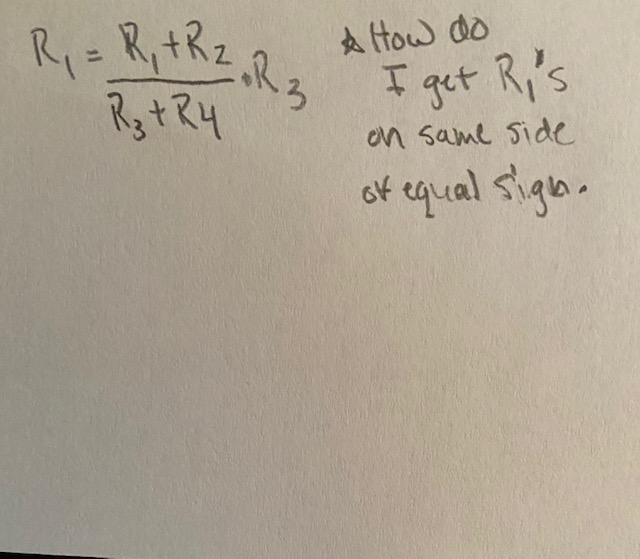 R₁ = R₁+R₂ / R₃+R4 · R₃
☆ How do
I get R₁'s
on same side
of equal sign.